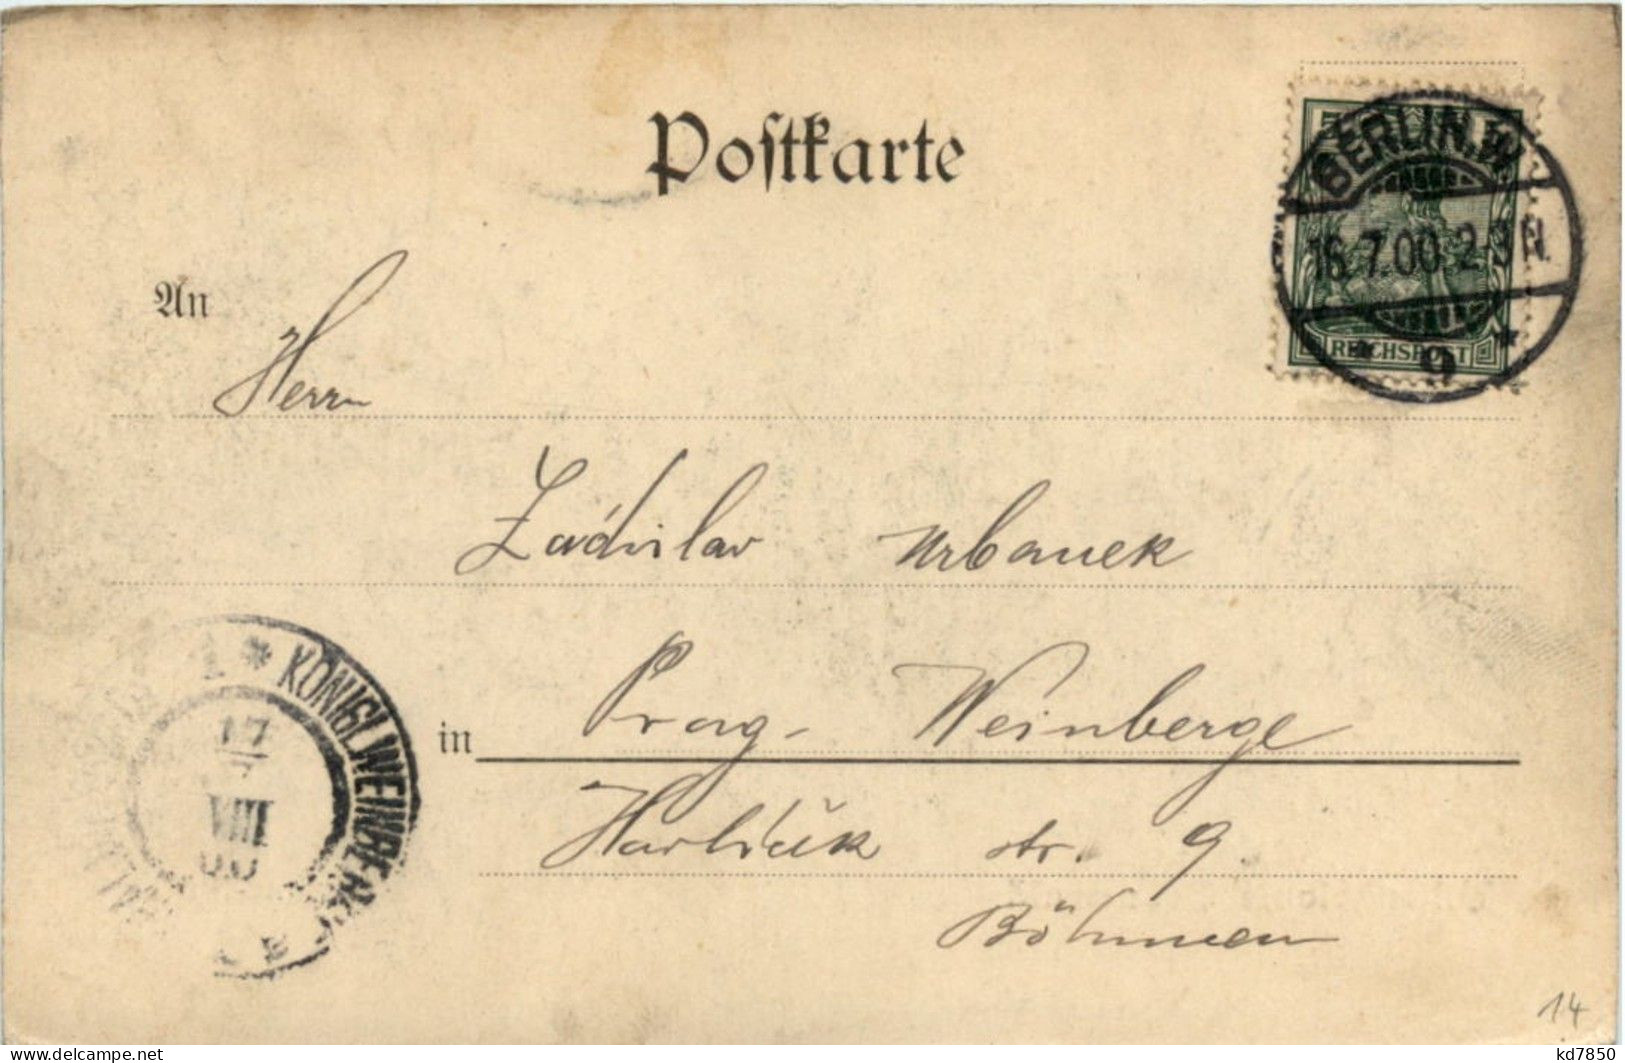 Postkarte
BERLIN.W.
16.7.00.2-3N.
9 *
REICHSPOST
An
Herrn
Ladislav Urbanek
in Prag- Weinberge
Havlíček str. 9
Böhmen
* KÖNIGL.WEINBERGE
17
VIII
00
14
delcampe.net
kd7850